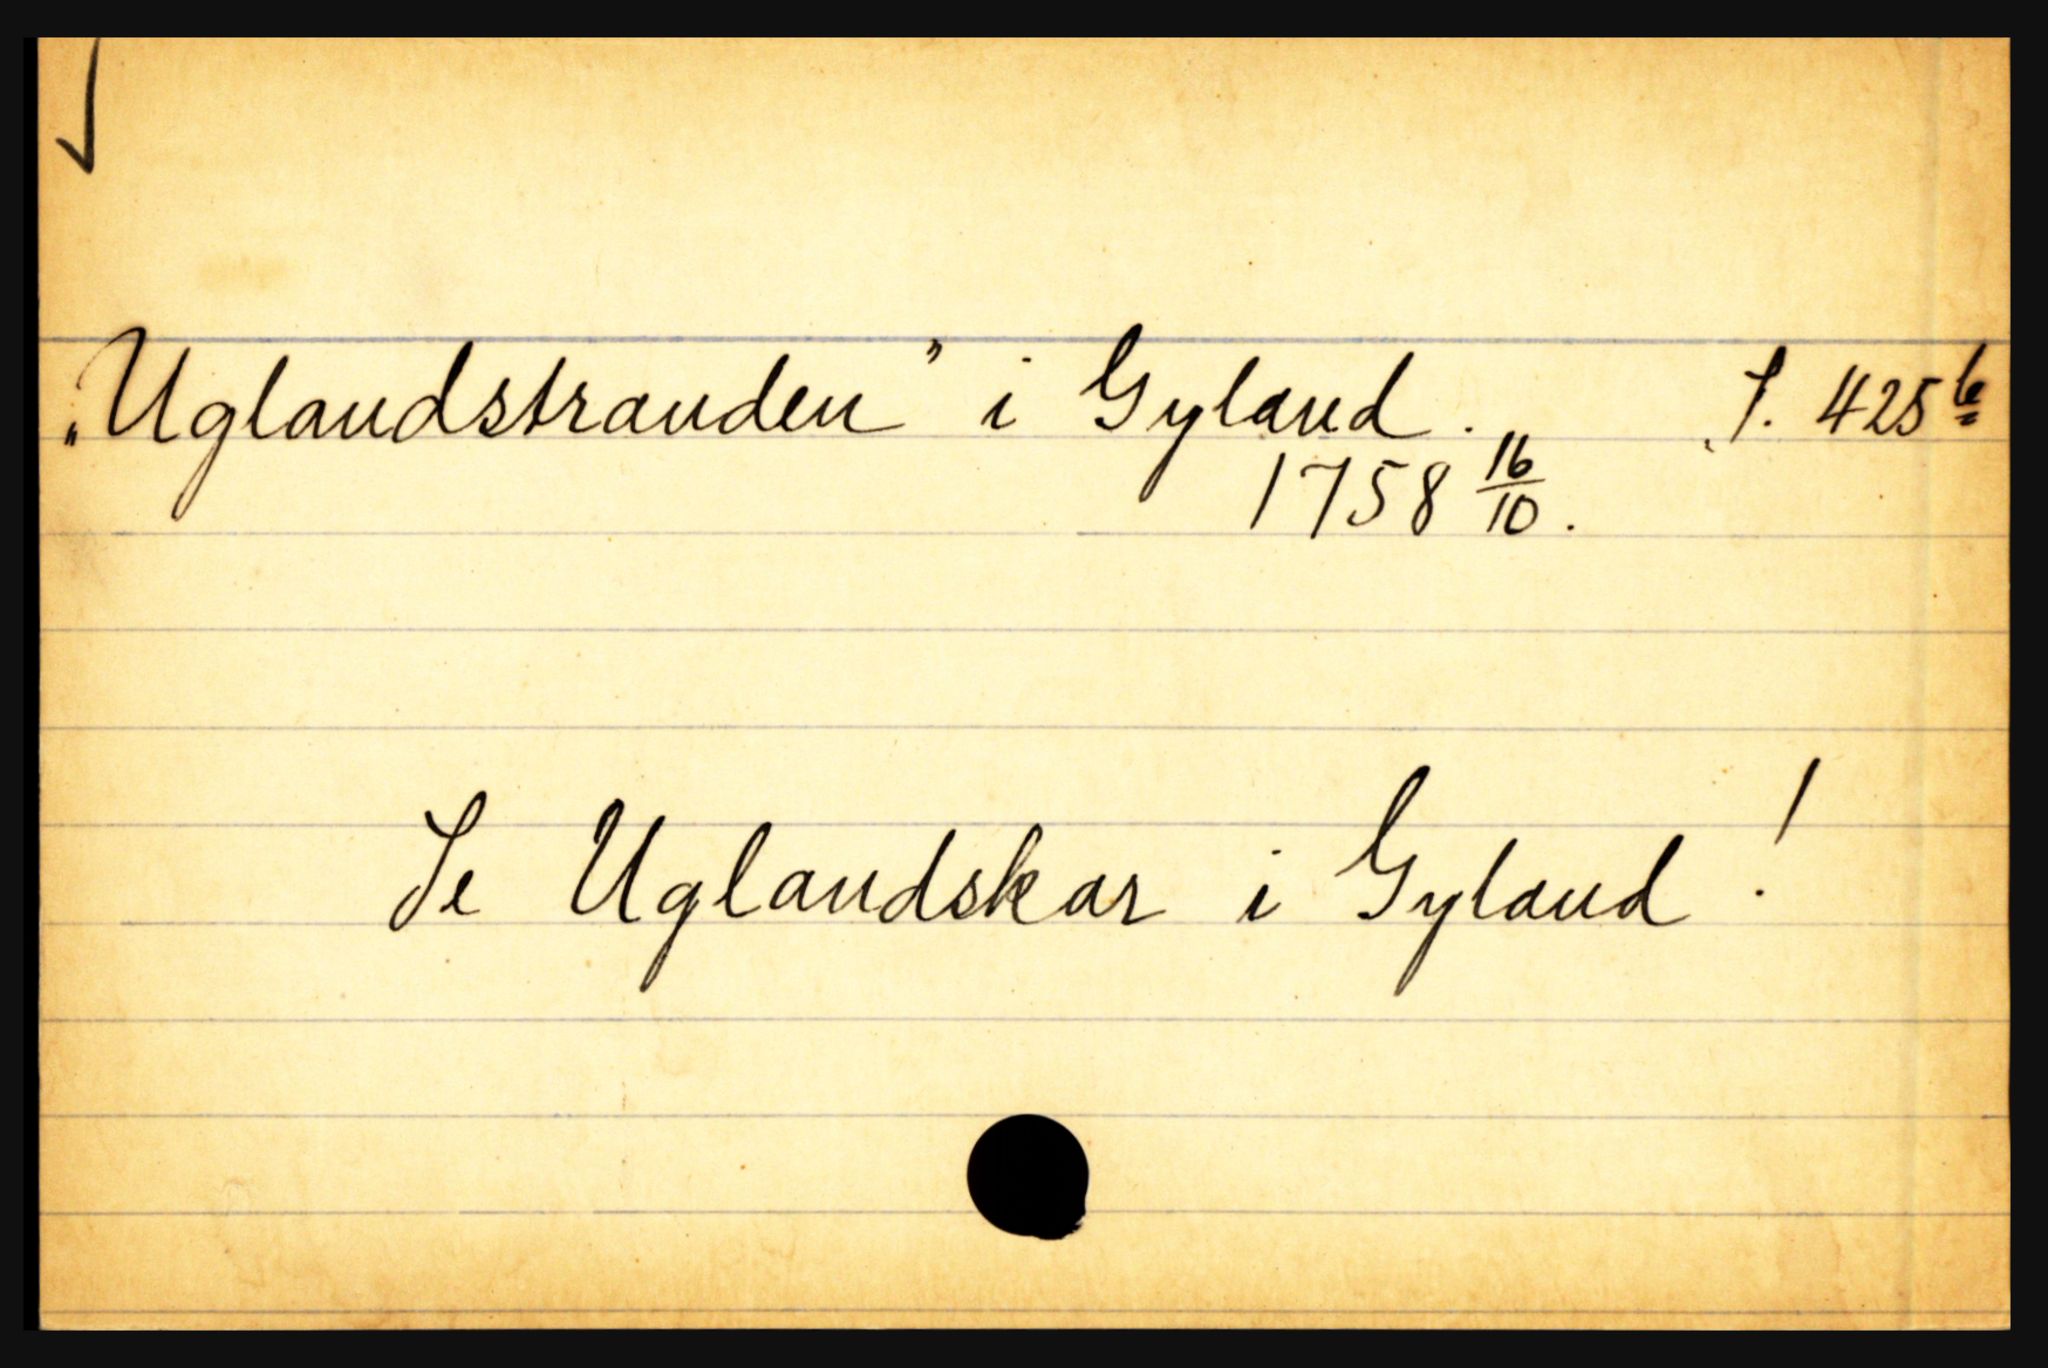 „Uglandstranden” i Gyland. S. 425b
1758 16/10.
Se Uglandskar i Gyland!